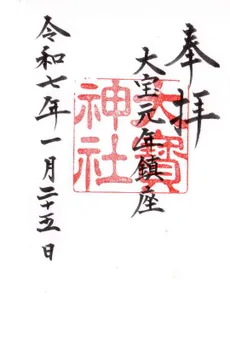 奉拝
大宝元年鎮座
大寶
神社
令和七年一月二十五日